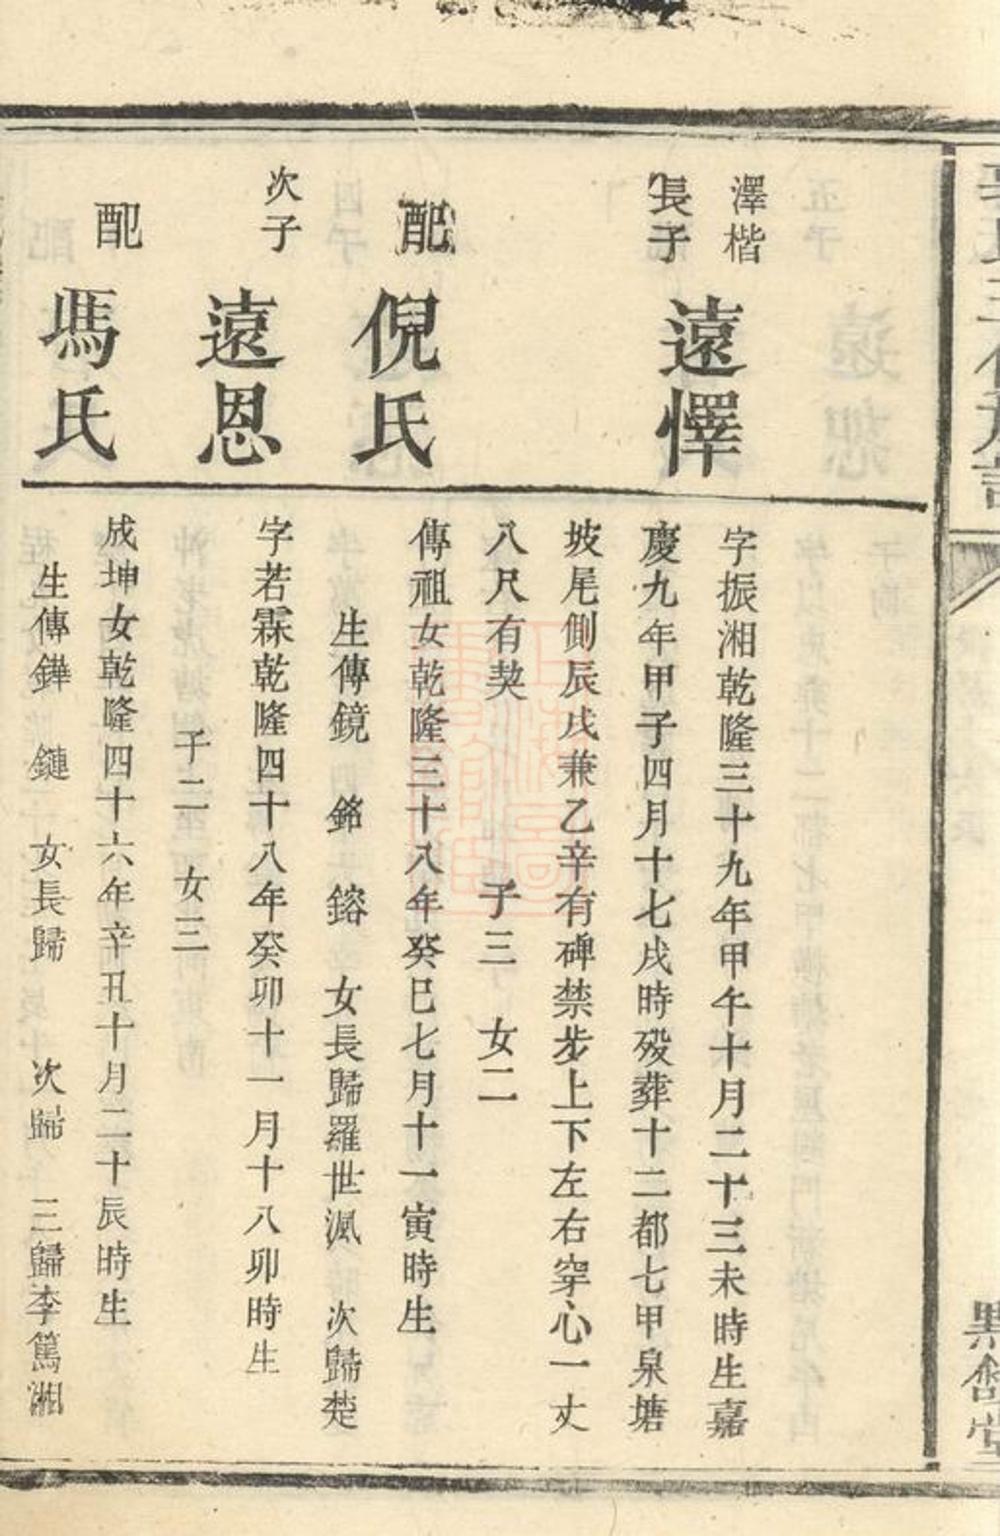 澤楷
長子
遠懌
字振湘乾隆三十九年甲午十月二十三未時生嘉
慶九年甲子四月十七戌時殁葬十二都七甲泉塘
坡尾側辰戌兼乙辛有碑禁步上下左右穿心一丈
八尺有契 子三 女二
配
倪氏
傳祖女乾隆三十八年癸巳七月十一寅時生
生傳鏡 銘 鎔 女長歸羅世渢 次歸楚
次子
遠恩
字若霖乾隆四十八年癸卯十一月十八卯時生
子二 女三
配
馮氏
成坤女乾隆四十六年辛丑十月二十辰時生
生傳鏵 鏈 女長歸 次歸 三歸李篤湘